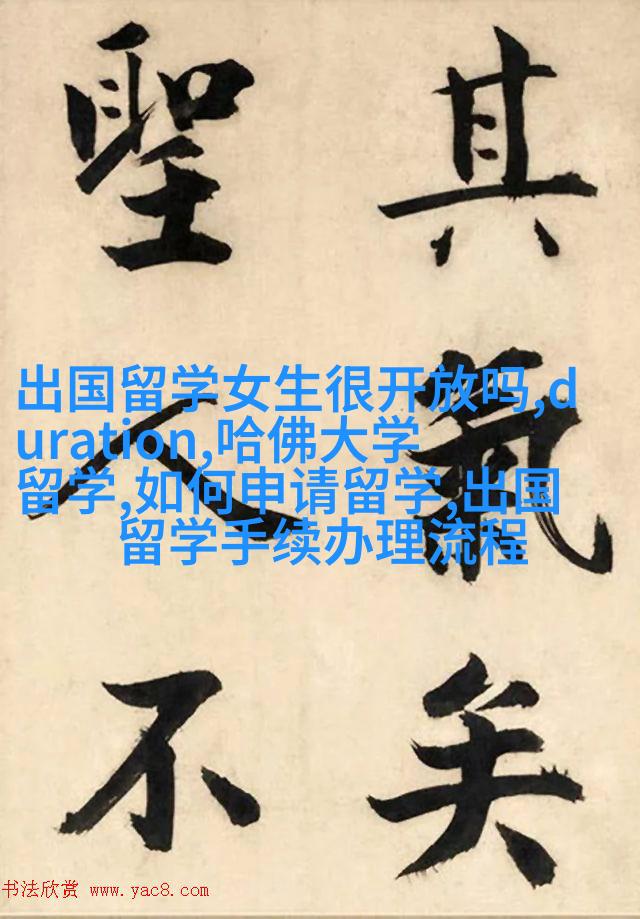 其氣矣
聖人不
出国留学女生很开放吗,d
uration,哈佛大学
留学,如何申请留学,出国
留学手续办理流程
书法欣赏 www.yac8.com